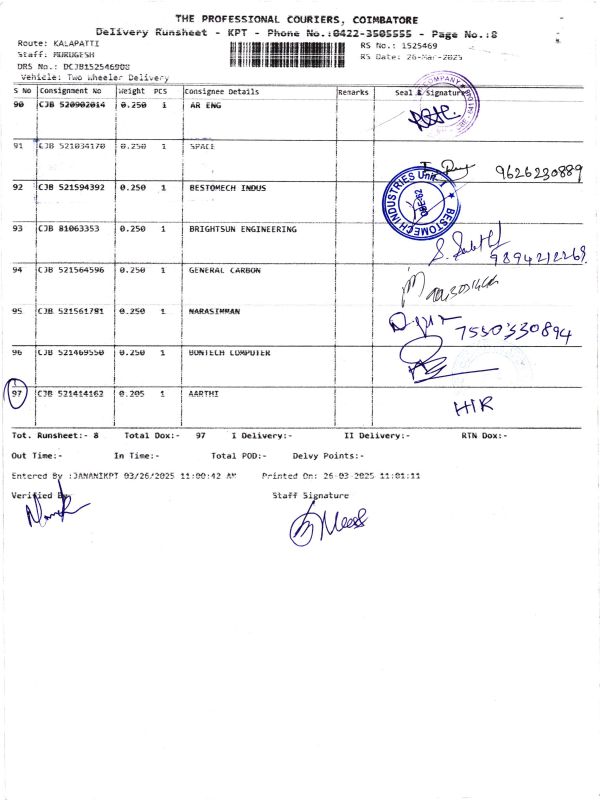 THE PROFESSIONAL COURIERS, COIMBATORE
Delivery Runsheet - KPT - Phone No.:0422-3505555 - Page No.:8
Route: KALAPATTI RS No.: 1525469
Staff: MURUGESH RS Date: 26-Mar-2025
DRS No.: DCJB152546908
Vehicle: Two Wheeler Delivery
S No Consignment No Weight PCS Consignee Details Remarks Seal & Signature
90 CJB 520902014 0.250 1 AR ENG
COMPANY
91 CJB 521034170 0.250 1 SPACE
9626230889
92 CJB 521594392 0.250 1 BESTOMECH INDUS
BESTOMECH INDUSTRIES Unit
93 CJB 81063353 0.250 1 BRIGHTSUN ENGINEERING
9894212268
94 CJB 521564596 0.250 1 GENERAL CARBON
95 CJB 521561781 0.250 1 NARASIMMAN
7550330894
96 CJB 521469550 0.250 1 BONTECH COMPUTER
97 CJB 521414162 0.205 1 AARTHI
H/R
Tot. Runsheet:- 8 Total Dox:- 97 I Delivery:- II Delivery:- RTN Dox:-
Out Time:- In Time:- Total POD:- Delvy Points:-
Entered By :JANANIKPT 03/26/2025 11:00:42 AM Printed On: 26-03-2025 11:01:11
Verified By Staff Signature